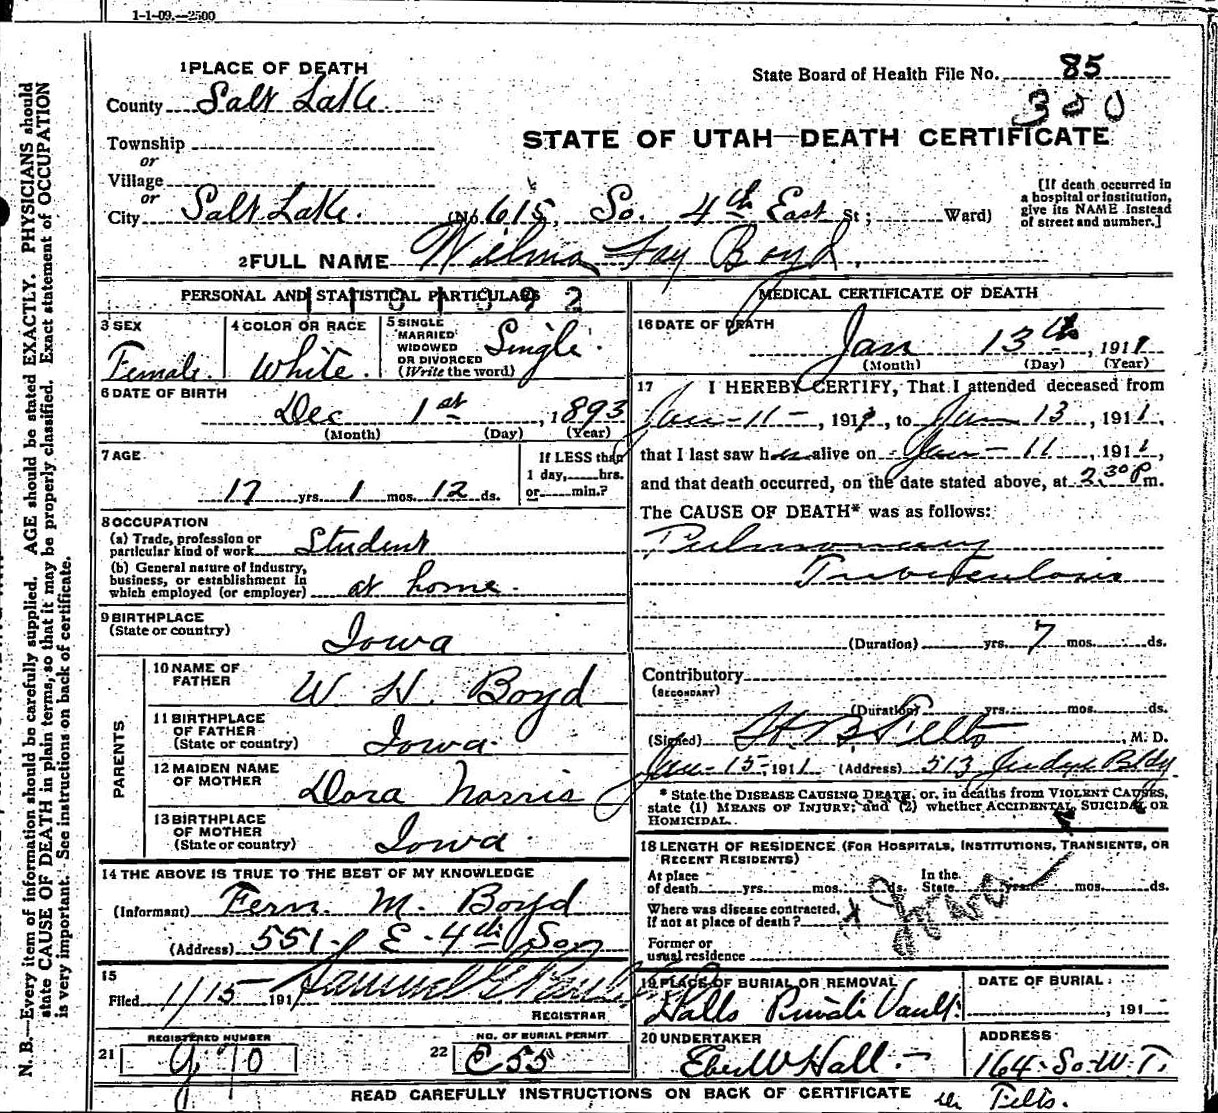 1-1-09.—2500
1 PLACE OF DEATH
State Board of Health File No. 85
County Salt Lake.
300
Township
STATE OF UTAH—DEATH CERTIFICATE
or
Village
or
City Salt Lake. (No. 615, So. 4th East St; Ward)
[If death occurred in a hospital or institution, give its NAME instead of street and number.]
2 FULL NAME Wilma Fay Boyd.
PERSONAL AND STATISTICAL PARTICULARS
3 SEX
Female.
4 COLOR OR RACE
White.
5 SINGLE MARRIED WIDOWED OR DIVORCED (Write the word)
Single.
6 DATE OF BIRTH
Dec 1st, 1893
(Month) (Day) (Year)
7 AGE
17 yrs. 1 mos. 12 ds.
If LESS than 1 day, hrs. or min.?
8 OCCUPATION
(a) Trade, profession or particular kind of work Student
(b) General nature of industry, business, or establishment in which employed (or employer) at home.
9 BIRTHPLACE
(State or country)
Iowa
PARENTS
10 NAME OF FATHER
W H. Boyd
11 BIRTHPLACE OF FATHER
(State or country) Iowa.
12 MAIDEN NAME OF MOTHER
Dora Norris
13 BIRTHPLACE OF MOTHER
(State or country) Iowa.
14 THE ABOVE IS TRUE TO THE BEST OF MY KNOWLEDGE
(Informant) Fern. M. Boyd
(Address) 551 E. 4th So
15
Filed 1/15 191
REGISTRAR
REGISTERED NUMBER
21
NO. OF BURIAL PERMIT
22 C 55
MEDICAL CERTIFICATE OF DEATH
16 DATE OF DEATH
Jan 13th, 1911
(Month) (Day) (Year)
17 I HEREBY CERTIFY, That I attended deceased from
Jan-11-, 1911, to Jan 13, 1911,
that I last saw her alive on Jan-11, 1911,
and that death occurred, on the date stated above, at 2:30 P m.
The CAUSE OF DEATH* was as follows:
Pulmonary
Tuberculosis
(Duration) yrs. 7 mos. ds.
Contributory
(SECONDARY)
(Duration) yrs. mos. ds.
(Signed) H. B. Felts M. D.
Jan-15-, 1911 (Address) 513 Judge Bldg
* State the DISEASE CAUSING DEATH, or, in deaths from VIOLENT CAUSES, state (1) MEANS OF INJURY; and (2) whether ACCIDENTAL, SUICIDAL OR HOMICIDAL.
18 LENGTH OF RESIDENCE (FOR HOSPITALS, INSTITUTIONS, TRANSIENTS, OR RECENT RESIDENTS)
At place of death yrs. mos. ds. In the State yrs. mos. ds.
Where was disease contracted, if not at place of death?
Former or usual residence
19 PLACE OF BURIAL OR REMOVAL
Halls Private Vault.
DATE OF BURIAL
, 191
20 UNDERTAKER
Eber W Hall.
ADDRESS
164-So. W. T.
READ CAREFULLY INSTRUCTIONS ON BACK OF CERTIFICATE
Felts.
N. B.—Every item of information should be carefully supplied. AGE should be stated EXACTLY. PHYSICIANS should
state CAUSE OF DEATH in plain terms, so that it may be properly classified. Exact statement of OCCUPATION
is very important. See instructions on back of certificate.